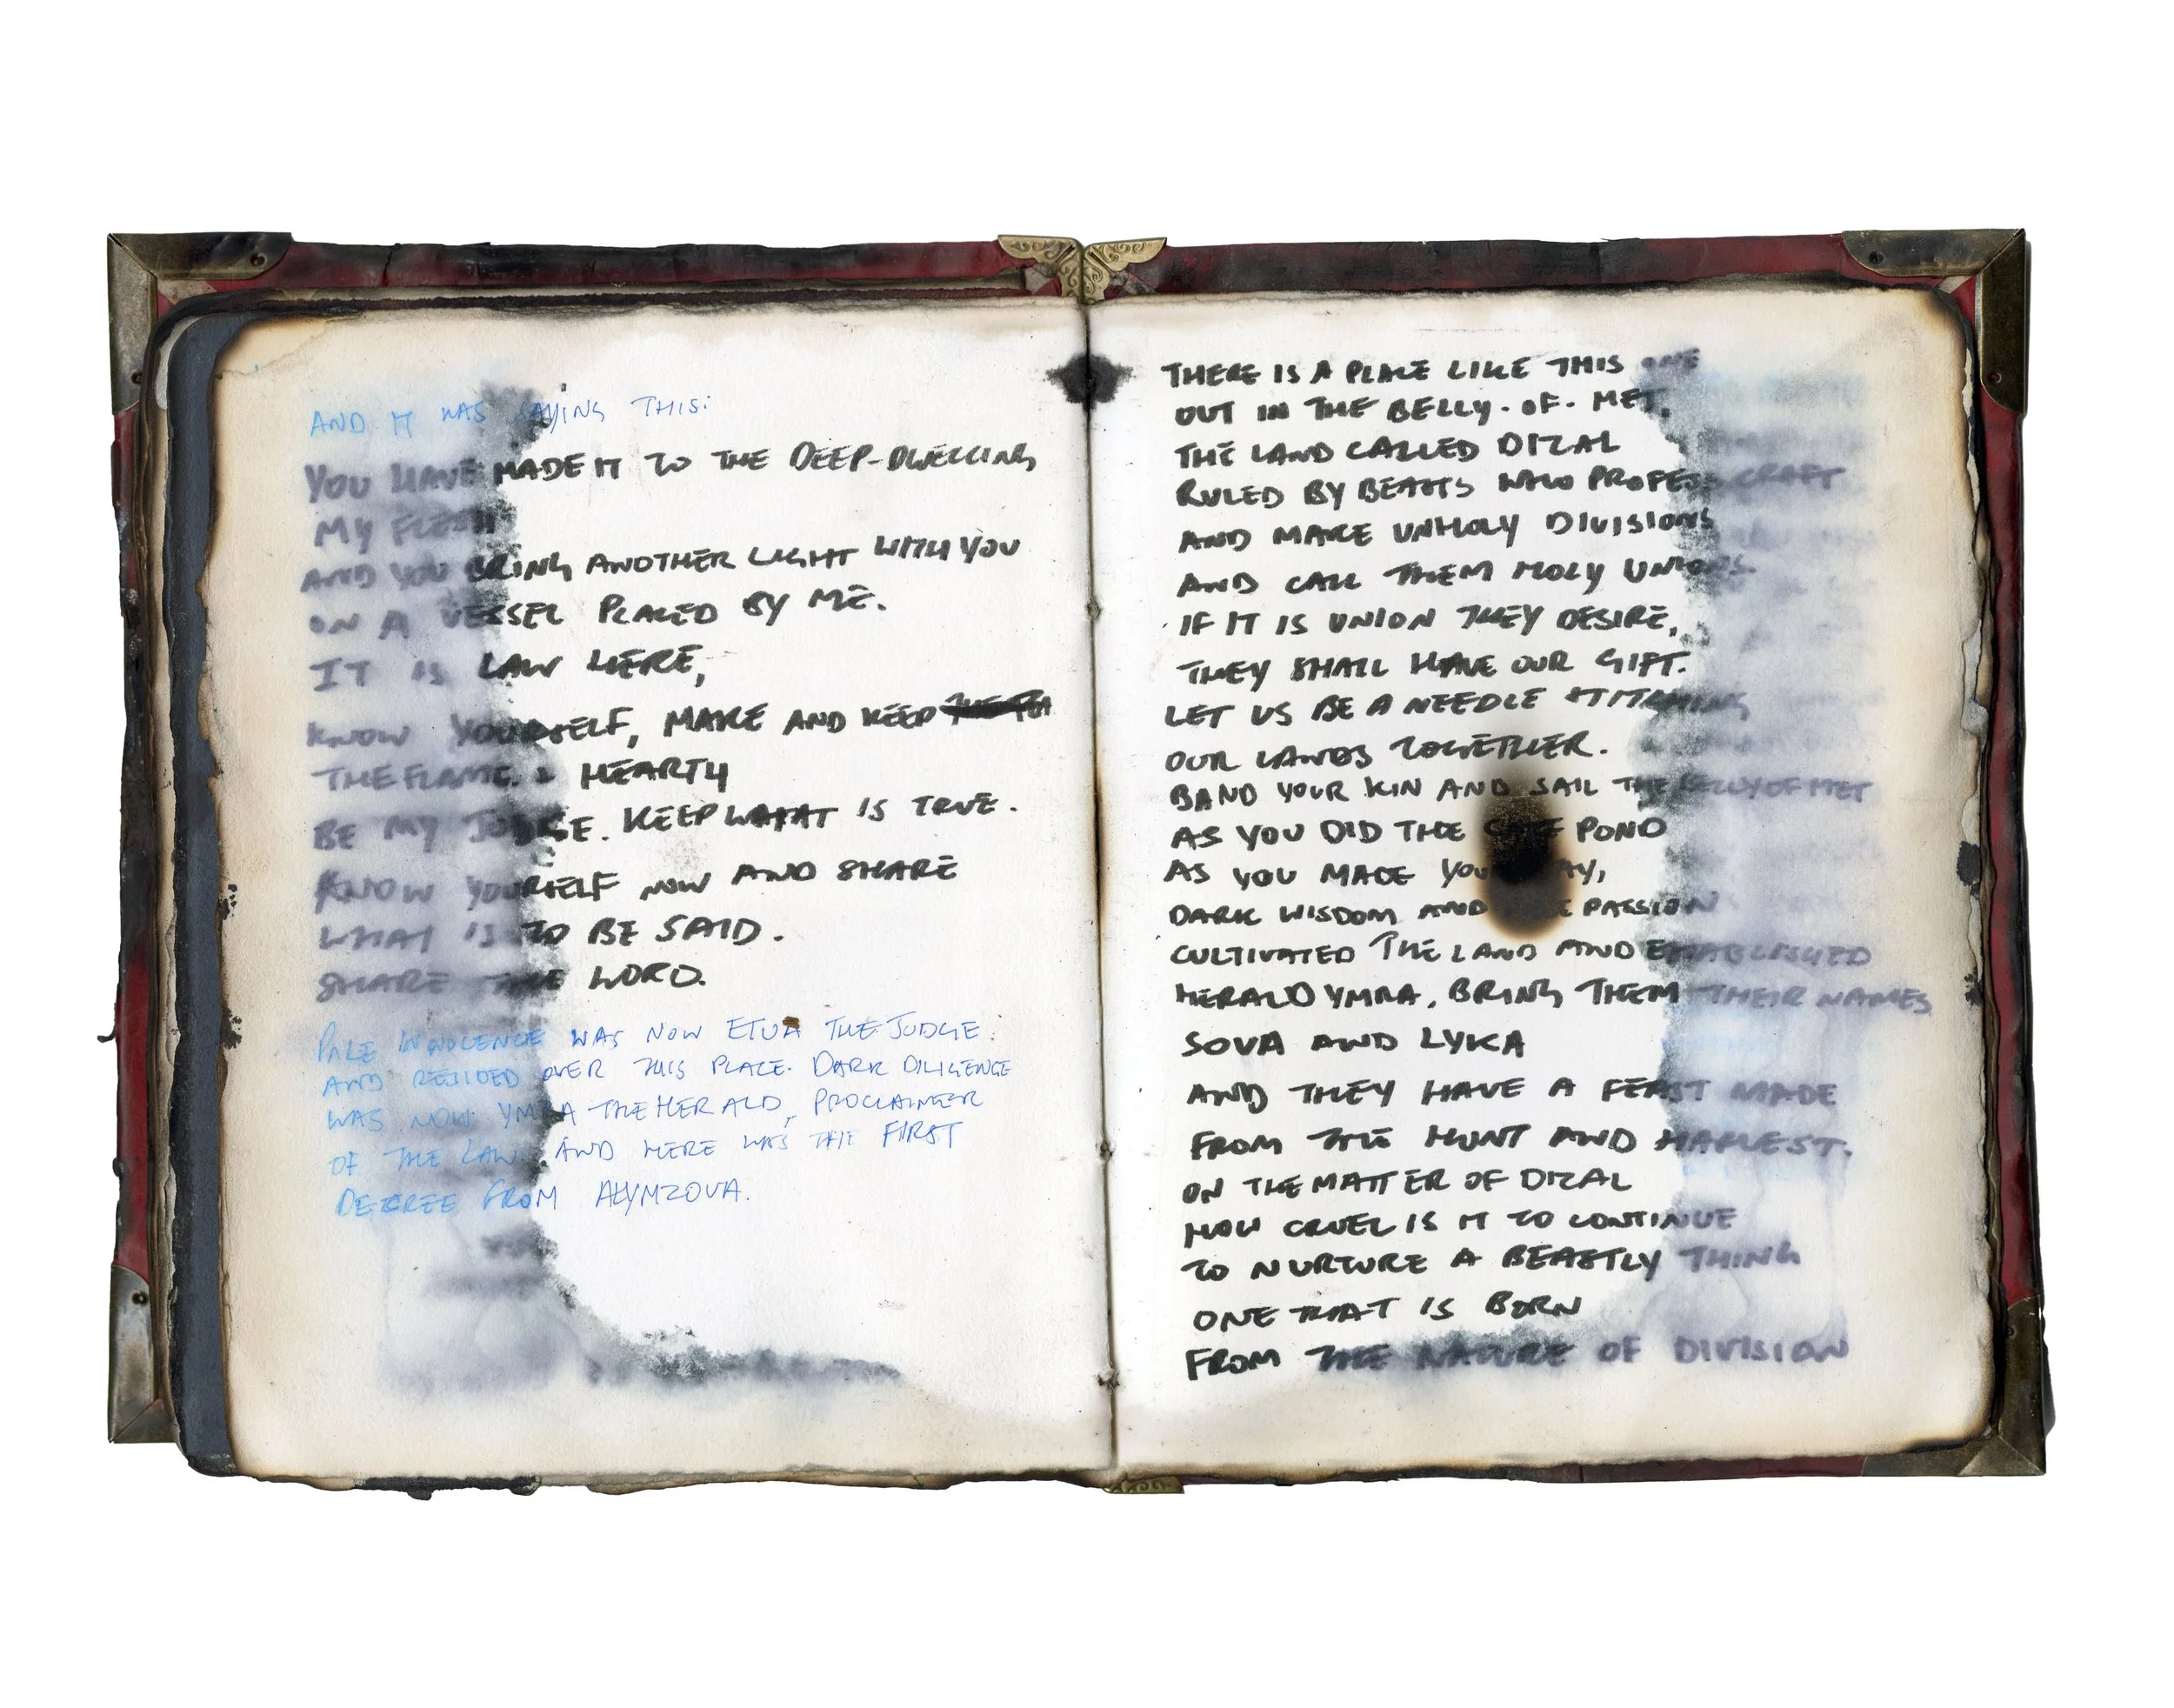 AND IT WAS SAYING THIS:
YOU HAVE MADE IT TO THE DEEP-DWELLING
MY FLESH
AND YOU BRING ANOTHER LIGHT WITH YOU
ON A VESSEL PLACED BY ME.
IT IS LAW HERE,
KNOW YOURSELF, MAKE AND KEEP
THE FLAME & HEARTH
BE MY JUDGE. KEEP WHAT IS TRUE.
KNOW YOURSELF NOW AND SHARE
WHAT IS TO BE SAID.
SHARE THE WORD.
PALE INNOCENCE WAS NOW ETUA THE JUDGE
AND RESIDED OVER THIS PLACE. DARK DILIGENCE
WAS NOW YMRA THE HERALD, PROCLAIMER
OF THE LAW. AND HERE WAS THE FIRST
DECREE FROM ALYMZOVA.
THERE IS A PLACE LIKE THIS ONE
OUT IN THE BELLY-OF-MET,
THE LAND CALLED DIZAL
RULED BY BEASTS WHO PROFESS CRAFT
AND MAKE UNHOLY DIVISIONS
AND CALL THEM HOLY UNIONS
IF IT IS UNION THEY DESIRE,
THEY SHALL HAVE OUR GIFT.
LET US BE A NEEDLE STITCHING
OUR LANDS TOGETHER.
BAND YOUR KIN AND SAIL THE BELLY OF MET
AS YOU DID THE POND
AS YOU MADE
DARK WISDOM AND PASSION
CULTIVATED THE LAND AND ESTABLISHED
HERALD YMRA, BRING THEM THEIR NAMES
SOVA AND LYKA
AND THEY HAVE A FEAST MADE
FROM THE HUNT AND HARVEST.
ON THE MATTER OF DIZAL
HOW CRUEL IS IT TO CONTINUE
TO NURTURE A BEASTLY THING
ONE THAT IS BORN
FROM THE NATURE OF DIVISION